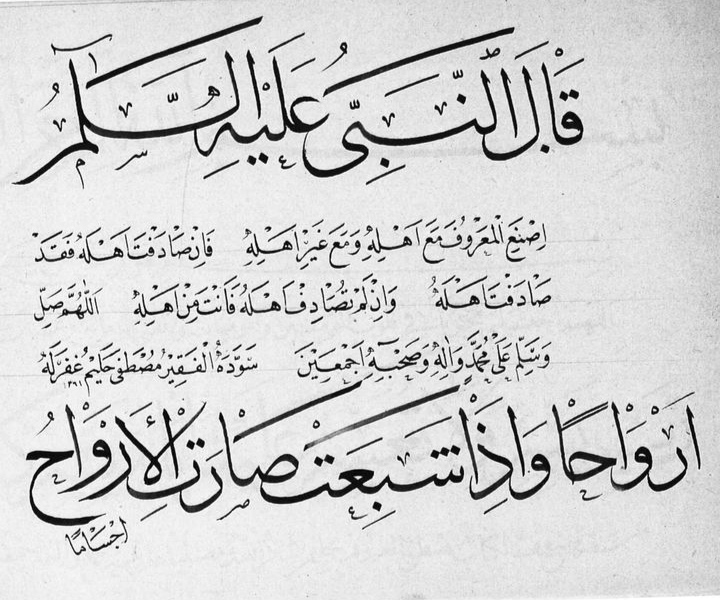 قَالَ النَّبِيُّ عَلَيْهِ السَّلٰمُ
اِصْنَعِ الْمَعْرُوفَ مَعَ اَهْلِهِ وَمَعَ غَيْرِ اَهْلِهِ فَاِنْ صَادَفْتَ اَهْلَهُ فَقَدْ
صَادَفْتَ اَهْلَهُ وَاِنْ لَمْ تُصَادِفْ اَهْلَهُ فَاَنْتَ مِنْ اَهْلِهِ اَللّٰهُمَّ صَلِّ
وَسَلِّمْ عَلٰى مُحَمَّدٍ وَاٰلِهِ وَصَحْبِهِ اَجْمَعِينَ سَوَّدَهُ الْفَقِيرُ مُصْطَفٰى حَلِيمُ غُفِرَ لَهُ
اَرْوَاحًا وَاِذَا شَبِعَتْ صَارَتِ الْاَرْوَاحُ
اَجْسَامًا